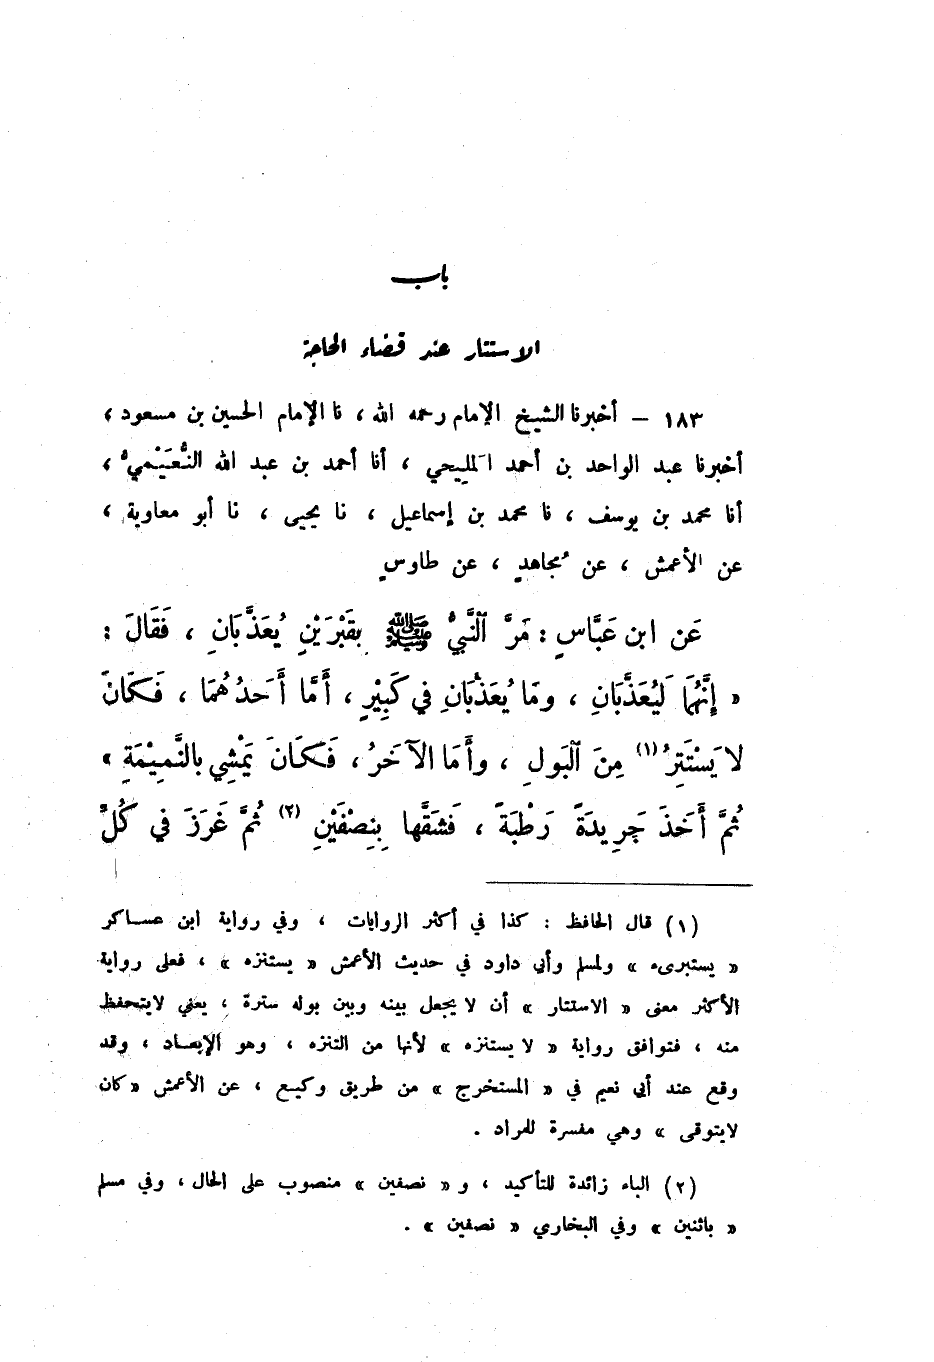 باب
الاستتار عند قضاء الحاجة
١٨٣ – أخبرنا الشيخ الإمام رحمه الله ، نا الإمام الحسين بن مسعود ،
أخبرنا عبد الواحد بن أحمد المليحي ، أنا أحمد بن عبد الله النُّعَيْميُّ ،
أنا محمد بن يوسف ، نا محمد بن إسماعيل ، نا يحيى ، نا أبو معاوية ،
عن الأعمش ، عن مُجاهدٍ ، عن طاوسٍ
عَن ابن عَبَّاسٍ : مَرَّ ٱلنَّبيُّ ﷺ بِقَبْرَيْنِ يُعَذَّبَانِ ، فَقَالَ :
« إِنَّهُمَا لَيُعَذَّبَانِ ، ومَا يُعَذَّبَانِ في كَبِيْرٍ ، أَمَّا أَحَدُهُمَا ، فَكَانَ
لا يَسْتَتِرُ (١) مِنَ ٱلبَولِ ، وأَمَا الآخَرُ ، فَكَانَ يَمْشِي بالنَّمِيْمَةِ »
ثُمَّ أَخَذَ جَرِيدَةً رَطْبَةً ، فَشَقَّها بِنِصْفَيْنِ (٢) ثُمَّ غَرَزَ في كُلِّ
(١) قال الحافظ : كذا في أكثر الروايات ، وفي رواية ابن عساكر
« يستبرىء » ولمسلم وأبي داود في حديث الأعمش « يستنزه » ، فعلى رواية
الأكثر معنى « الاستتار » أن لا يجعل بينه وبين بوله سترة ، يعني لايتحفظ
منه ، فتوافق رواية « لا يستنزه » لأنها من التنزه ، وهو الإبعاد ، وقد
وقع عند أبي نعيم في « المستخرج » من طريق وكيع ، عن الأعمش « كان
لايتوقى » وهي مفسرة للمراد .
(٢) الباء زائدة للتأكيد ، و « نصفين » منصوب على الحال ، وفي مسلم
« باثنين » وفي البخاري « نصفين » .